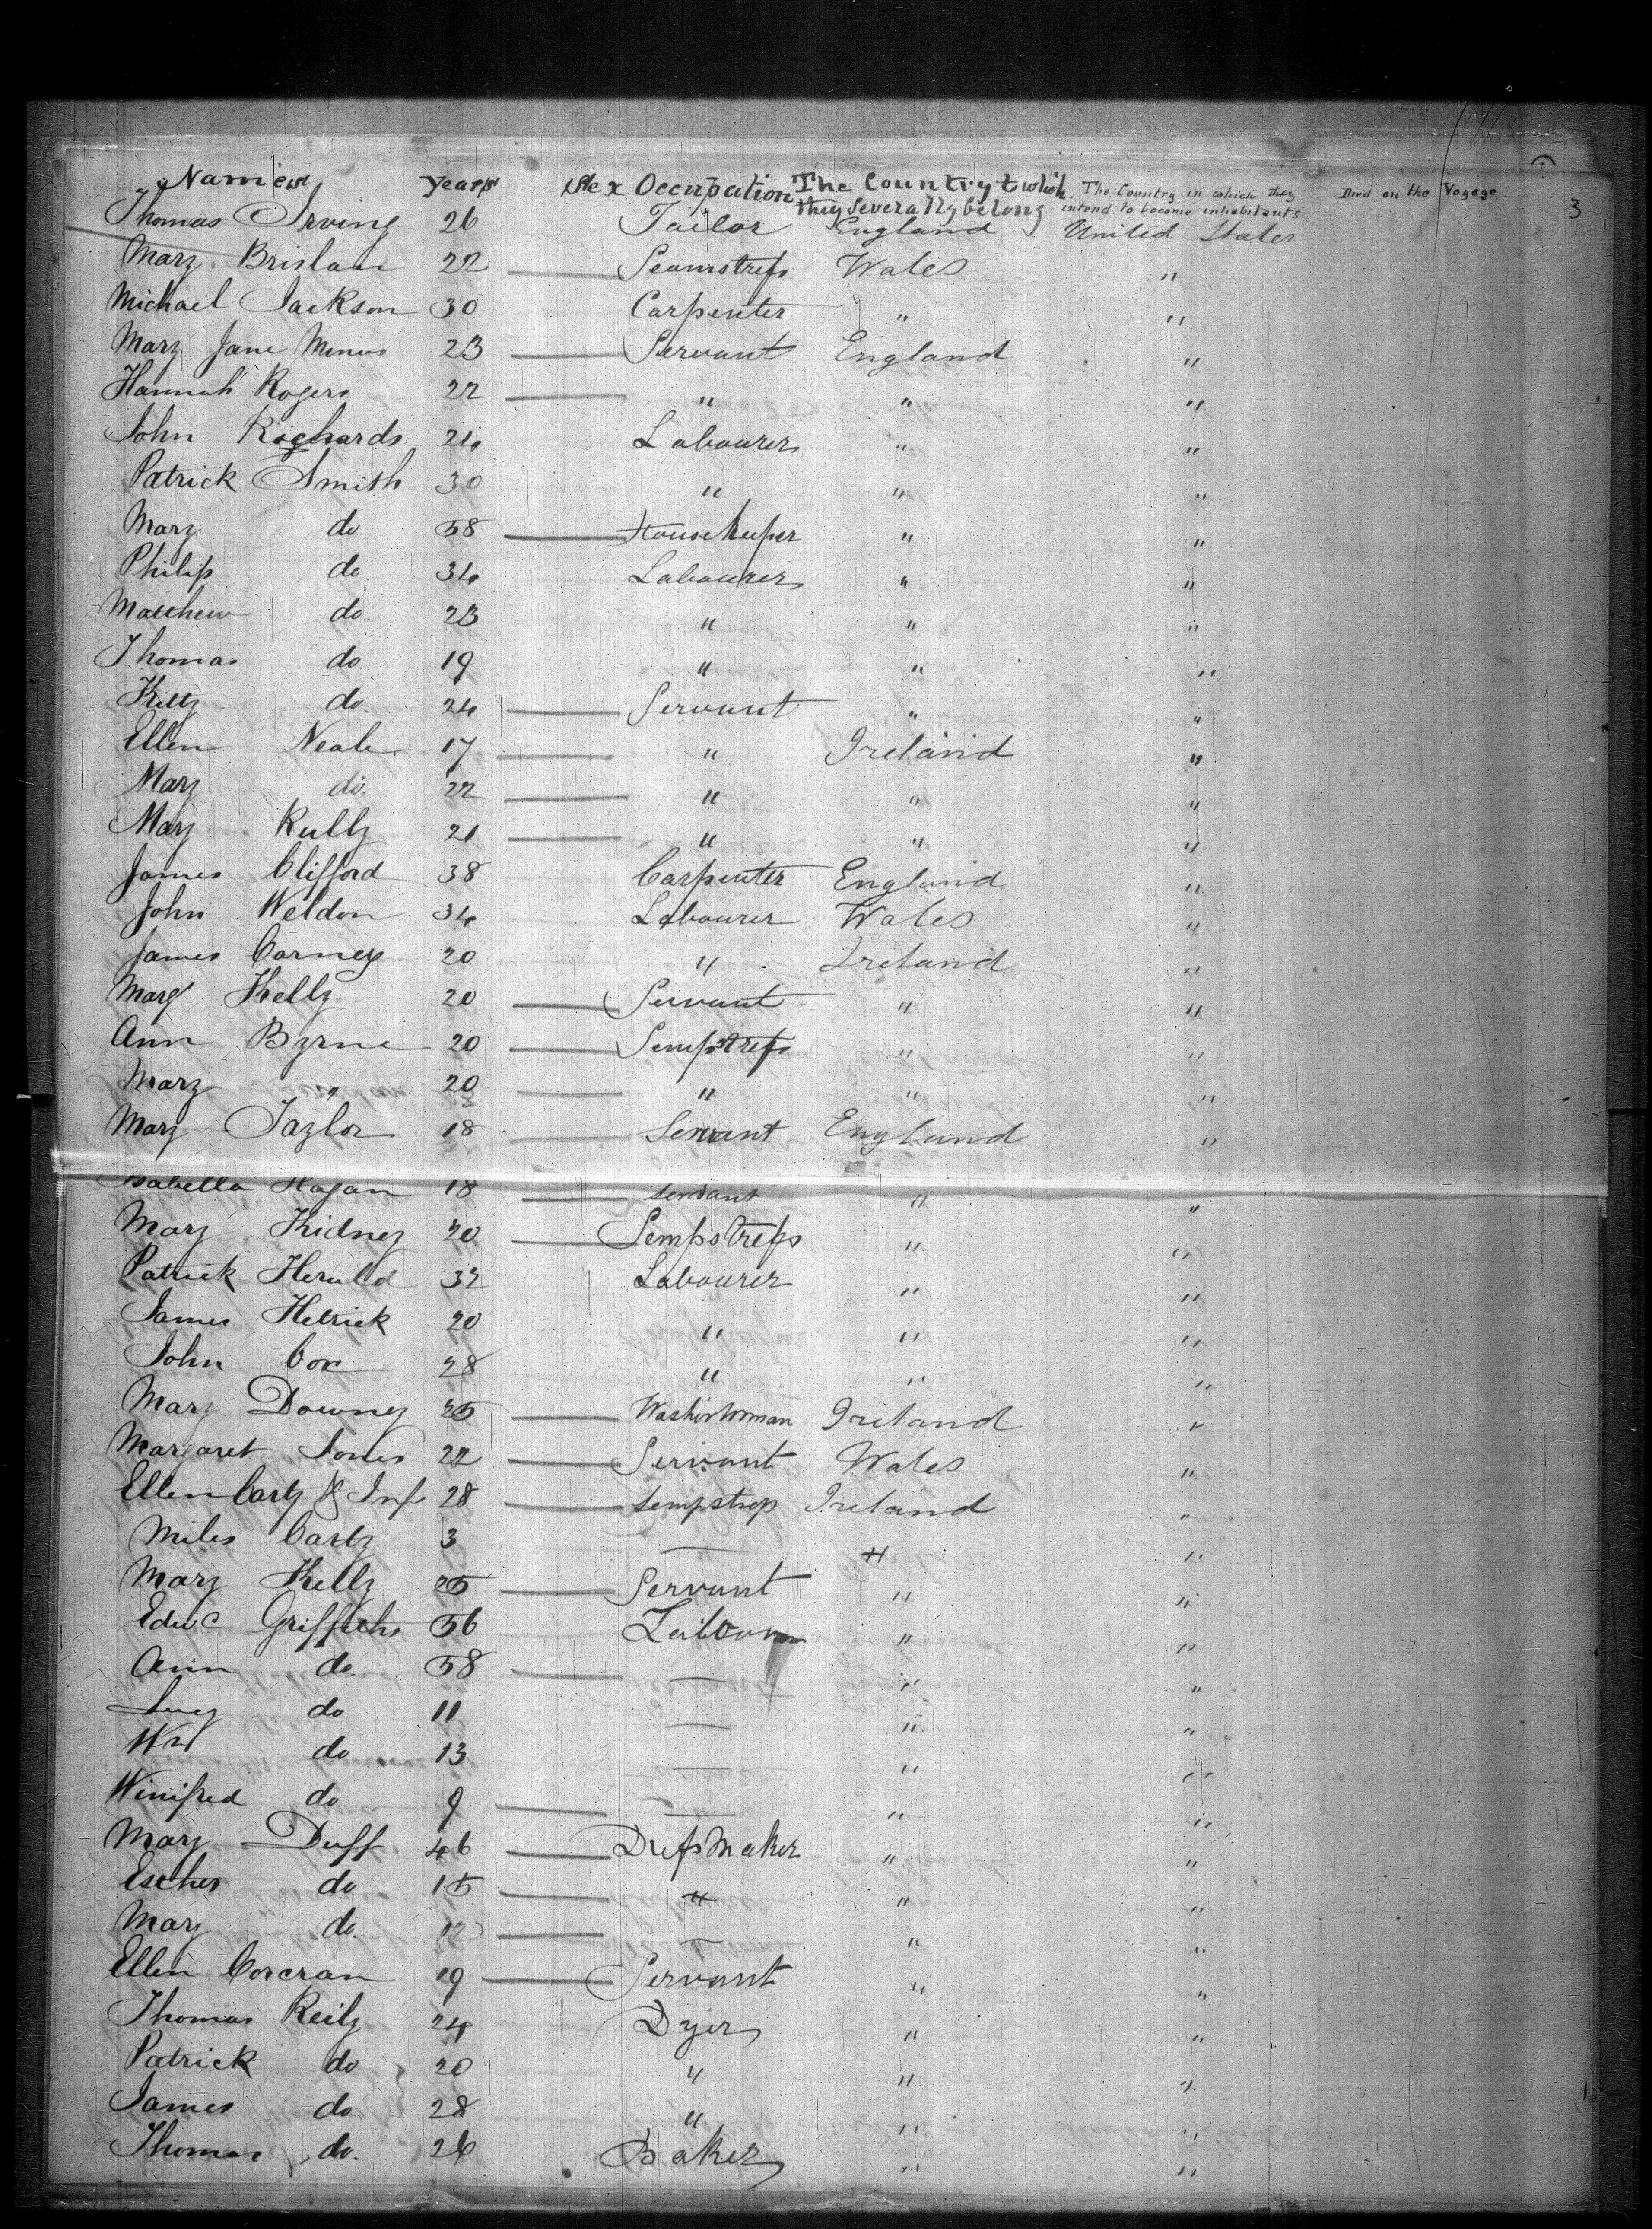 Names Years Sex Occupation The Country to which they severally belong The Country in which they intend to become inhabitants Died on the Voyage
3
Thomas Irving 26 Tailor England United States
Mary 22 Seamstress Wales "
Michael Jackson 30 Carpenter " "
Mary Jane 23 Servant England "
Hannah Rogers 22 " " "
John Richards 24 Labourer " "
Patrick Smith 30 " " "
Mary do 58 Housekeeper " "
Philip do 34 Labourer " "
Matthew do 23 " " "
Thomas do 19 " " "
Kitty do 24 Servant " "
Ellen Neale 17 " Ireland "
Mary do. 22 " " "
Mary 21 " " "
James Clifford 38 Carpenter England "
John Weldon 34 Labourer Wales "
James Carney 20 " Ireland "
Mary Kelly 20 Servant " "
Ann Byrne 20 Sempstress " "
Mary " 20 " " "
Mary Taylor 18 Servant England "
Isabella Hagan 18 Servant " "
Mary Kidney 20 Sempstress " "
Patrick Herald 32 Labourer " "
James Hetrick 20 " " "
John Cox 28 " " "
Mary Downey 25 Washerwoman Ireland "
Margaret Jones 22 Servant Wales "
Ellen Carty & Inf 28 Sempstress Ireland "
Miles Carty 3 — " "
Mary Kelly 25 Servant " "
Edwd Griffiths 56 " "
Ann do 58 — " "
Lucy do 11 — " "
Wm do 13 — " "
Winifred do 9 — " "
Mary Duff 46 Dress Maker " "
Esther do 15 " " "
Mary do. 12 — " "
Ellen Corcran 19 Servant " "
Thomas Reily 24 Dyer " "
Patrick do 20 " " "
James do 28 " " "
Thomas do. 26 Baker " "